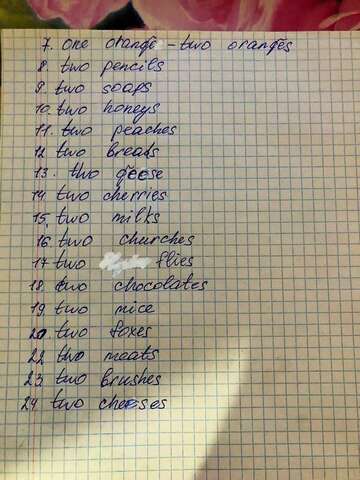 7. one orange - two oranges
8 two pencils
9. two soaps
10. two honeys
11. two peaches
12 two breads
13. two geese
14 two cherries
15. two milks
16 two churches
17 two flies
18 two chocolates
19 two mice
20 two foxes
22 two meats
23 two brushes
24 two cheeses